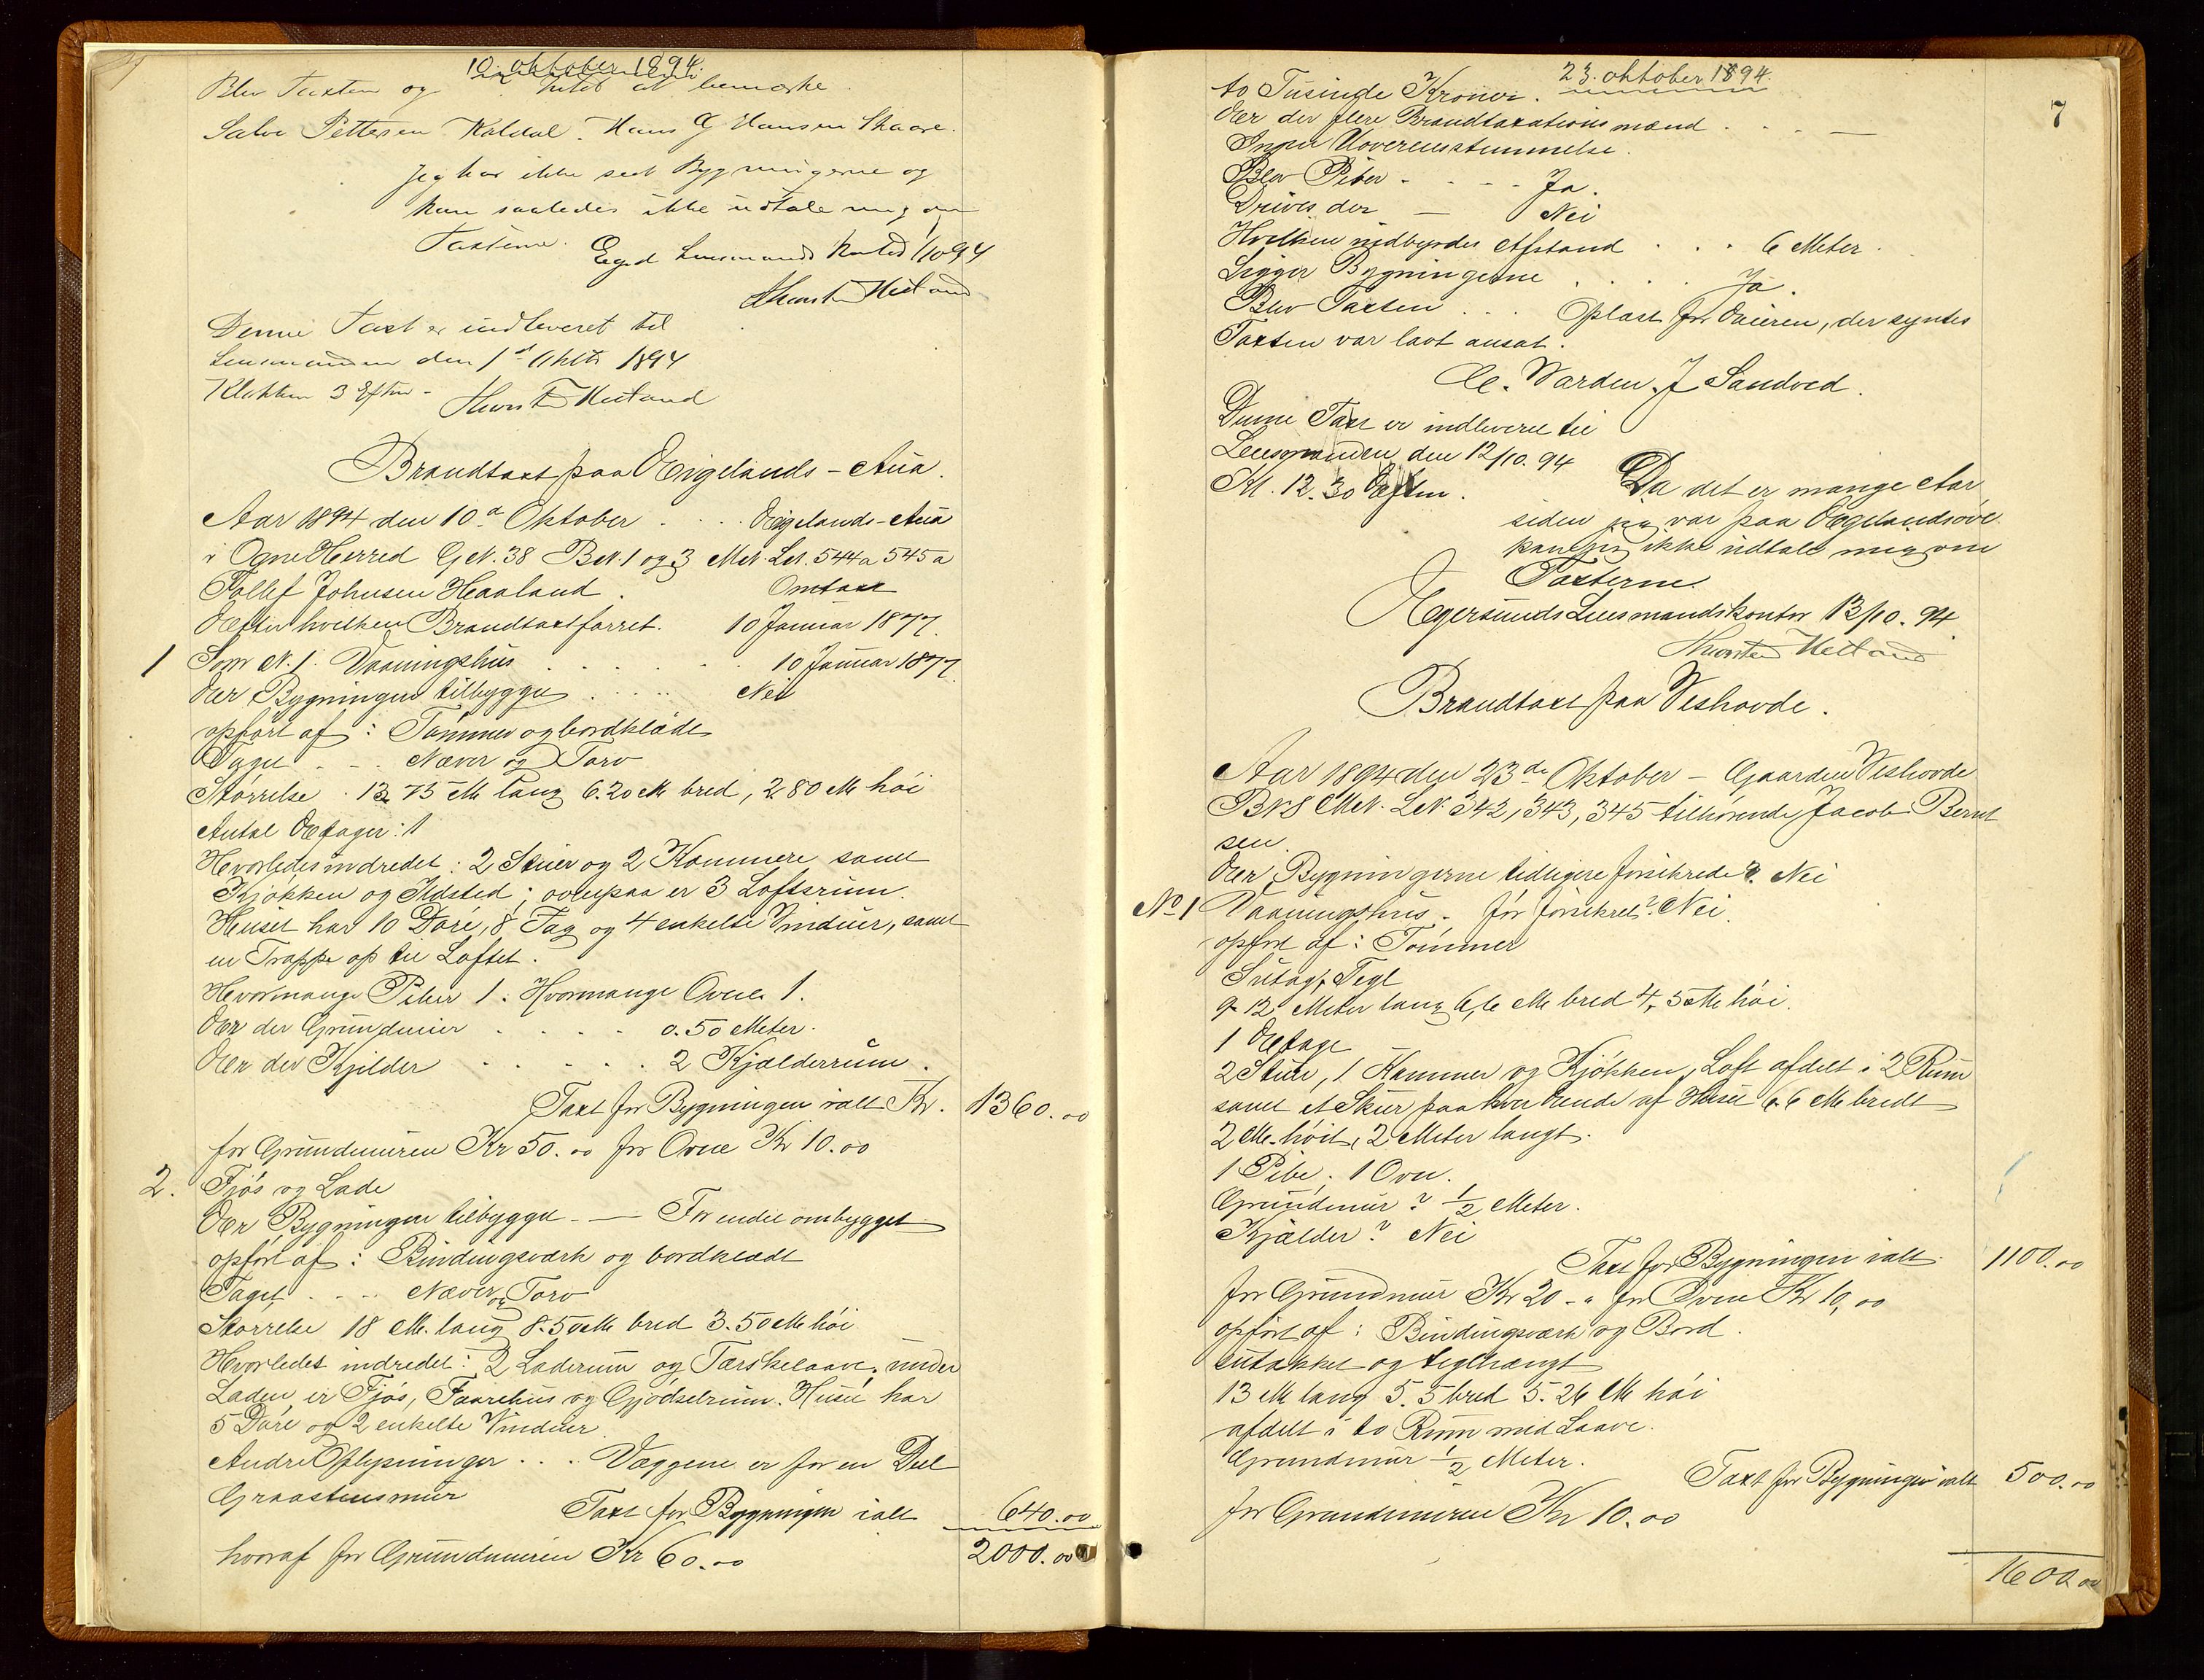 10. oktober 1894.
Blev Taxten og intet at bemærke.
Salve Pettersen Koldal. Hans G Hansen Skaare.
Jeg har ikke seet Bygningerne og
kan saaledes ikke udtale mig om
Taxterne.
Egd Lensmands Kontor 1/10 94
Thorsten Hetland
Denne Taxt er indleveret til
Lensmanden den 1st Oktb 1894
Klokken 3 Efter -
Thorsten Hetland
Brandtaxt paa Eigelands-Aua.
Aar 1894 den 10d Oktober . . . . Eigelands-Aua
i Ogne Herred G.N. 38 B.N. 1 og 3 M.N. L.N. 544a 545a
Tollef Johnsen Haaland. Omtaxt
Efter hvilken Brandtaxtforret. 10 Januar 1877.
1 Som N. 1. Vaaningshus . . . . 10 Januar 1877.
Er Bygningen tilbygget . . . . Nei
opført af : Tømmer og bordklædt
Taget . . - Næver og Torv
Størrelse . 13.75 M lang 6.20 M bred, 2.80 M høi
Antal Etager : 1
Hvorledes indredet : 2 Stuer og 2 Kammere samt
Kjøkken og Ildsted ; ovenpaa er 3 Loftsrum.
Huset har 10 Døre, 8 Fag og 4 enkelte Vinduer, samt
en Trappe op til Loftet.
Hvormange Piber 1. Hvormange Ovne 1.
Er der Grundmur . . . . 0.50 Meter.
Er der Kjelder . . . . . 2 Kjælderrum.
Taxt for Bygningen ialt Kr. 1360.00
for Grundmuren Kr 50.00 for Ovne Kr 10.00
2. Fjøs og Lade
Er Bygningen tilbygget - — For endel ombygget
opført af : Bindingsværk og bordklædt
Taget . - - Næver og Torv
Størrelse 18 M. lang 8.50 M bred 3.50 M høi
Hvorledes indredet : 2 Laderum og Tærskelaave, under
Laden er Fjøs, Faarehus og Gjødselrum. Huset har
5 Døre og 2 enkelte Vinduer.
Andre Oplysninger . . . Væggene er for en Del
Graastensmur
Taxt for Bygningen ialt 640.00
hvoraf for Grundmuren Kr 60.00 2000.00
23. oktober 1894.
7
to Tusinde Kroner.
Er der flere Brandtaxationsmænd . . . —
Ingen Uoverensstemmelse.
Blev Piber - . - - Ja.
Drives der — Nei
Hvilken indbyrdes Afstand . . . 6 Meter.
Ligger Bygningerne . . . . Ja.
Blev Taxten . . . Oplæst for Eieren, der syntes
Taxten var lavt ansat.
C. Warden. J Sandved.
Denne Taxt er indleveret til
Lensmanden den 12/10. 94
Kl. 12.30 Eftm.
Da det er mange Aar
siden jeg var paa Egelandsove
kan jeg ikke udtale mig om
Taxterne.
Egersunds Lensmandskontor 13/10. 94.
Thorsten Hetland
Brandtaxt paa Veshovde.
Aar 1894 den 23de Oktober - Gaarden Veshovde
B.N. 8 M.N. L.N. 342, 343, 345 tilhørende Jacob Bernt
sen.
Er Bygningerne tidligere forsikrede? Nei
No 1 Vaaningshus. før forsikret? Nei.
opført af : Tømmer
Sutag, Tegl
9.12 Meter lang 6,6 M bred 4,5 M høi.
1 Etage
2 Stuer, 1 Kammer og Kjøkken, Loft afdelt i 2 Rum
samt et Skur paa hver Ende af Huset 6.6 M bredt
2 M. høit, 2 Meter langt.
1 Pibe. 1 Ovn.
Grundmur ? 1/2 Meter.
Kjælder ? Nei
Taxt for Bygningen ialt 1100.00
for Grundmur Kr 20 - " for Ovne Kr 10,00
opført af : Bindingsværk og Bord.
sutakket og teglhængt
13 M lang 5.5 bred 5.26 M høi
afdelt i to Rum med Laave.
Grundmur 1/2 Meter.
Taxt for Bygningen ialt 500.00
for Grundmuren Kr 10.00
1600.00